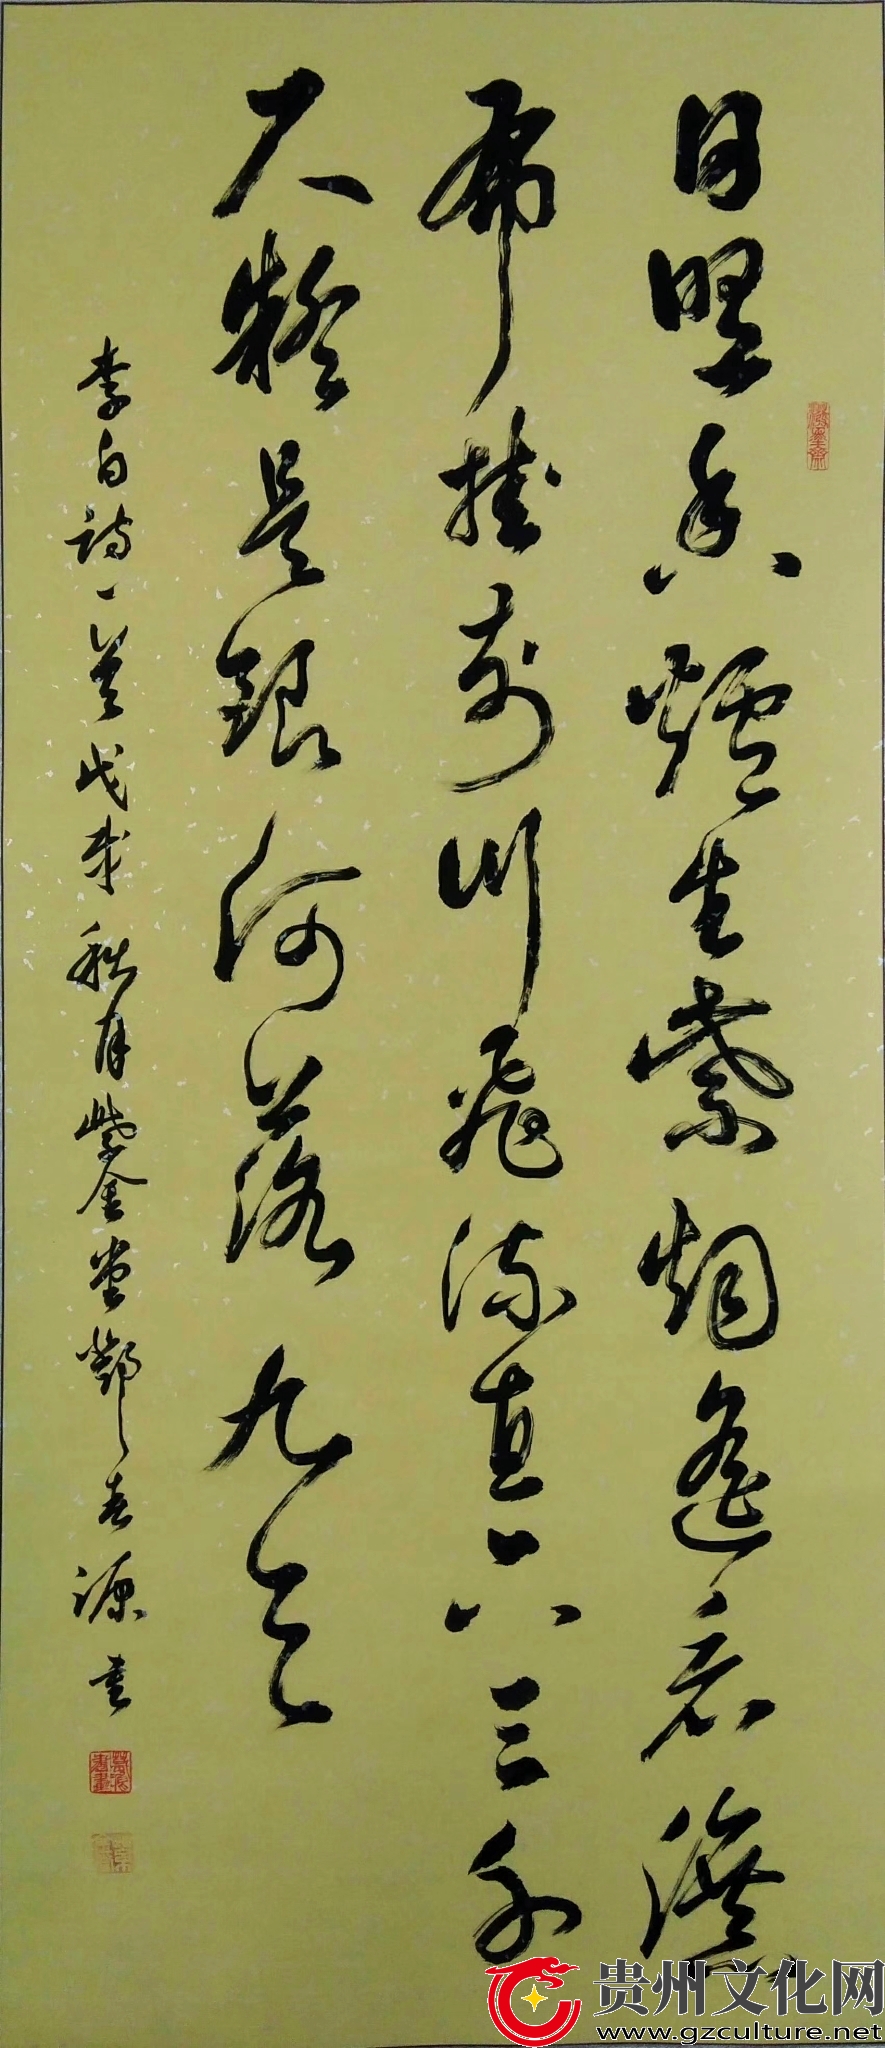 日照香爐生紫烟遙看瀑
布掛前川飛流直下三千
尺疑是銀河落九天
李白詩一首戊戌秋月紫金堂鄧源書
贵州文化网
www.gzculture.net